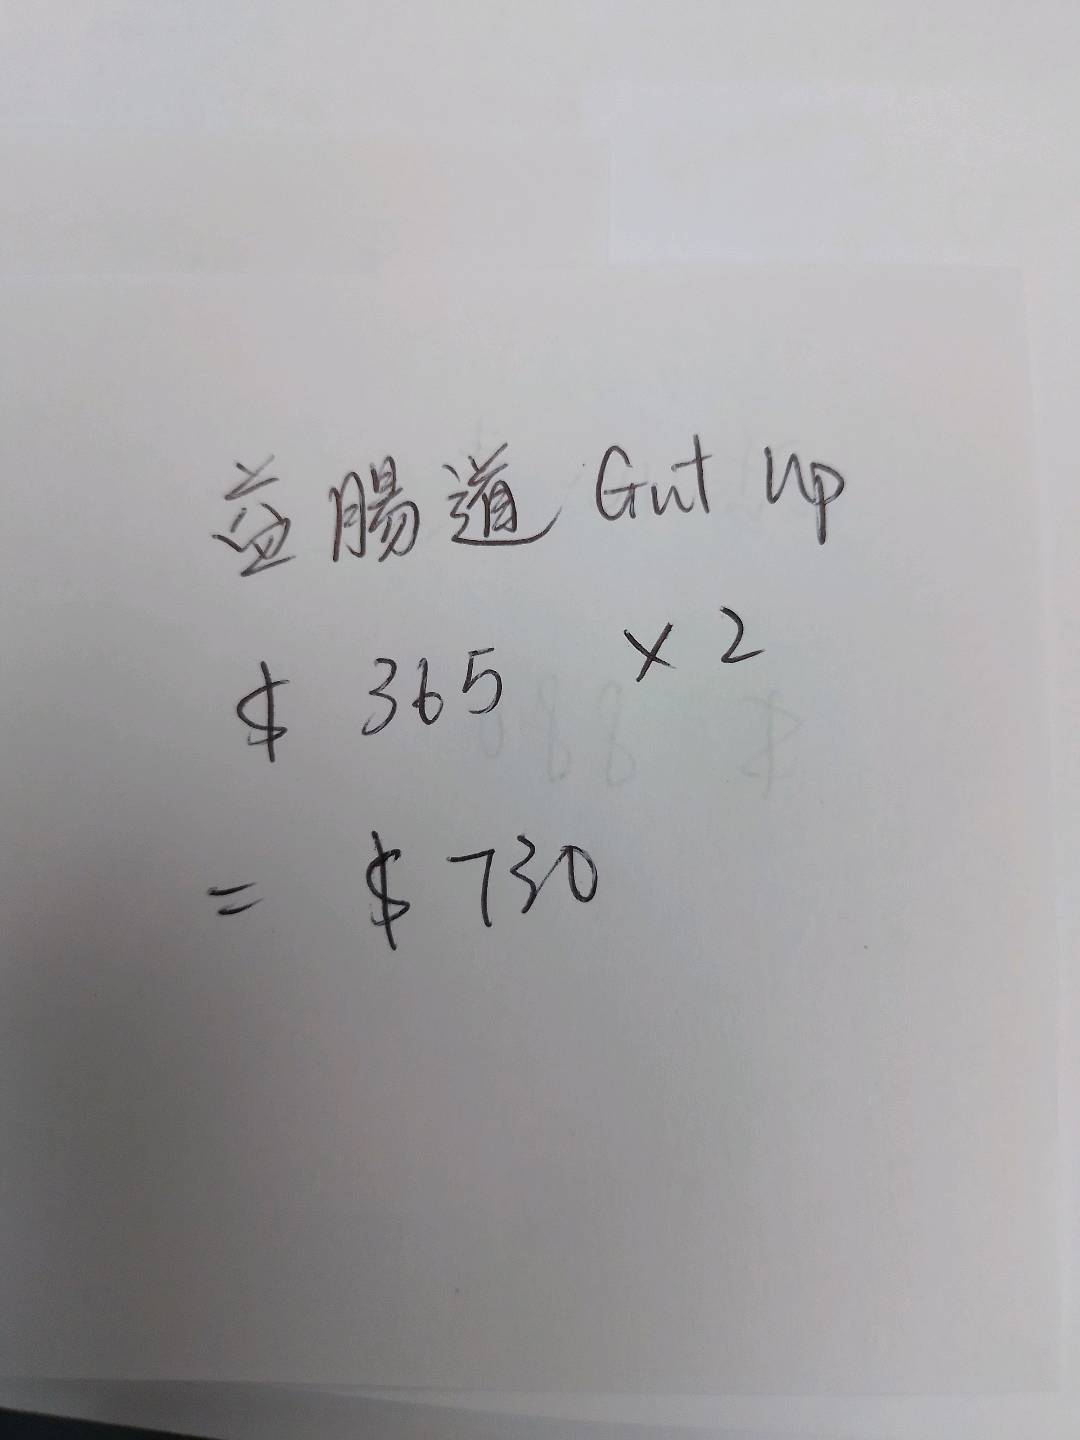 益腸道 Gut up
$ 365 x 2
= $ 730